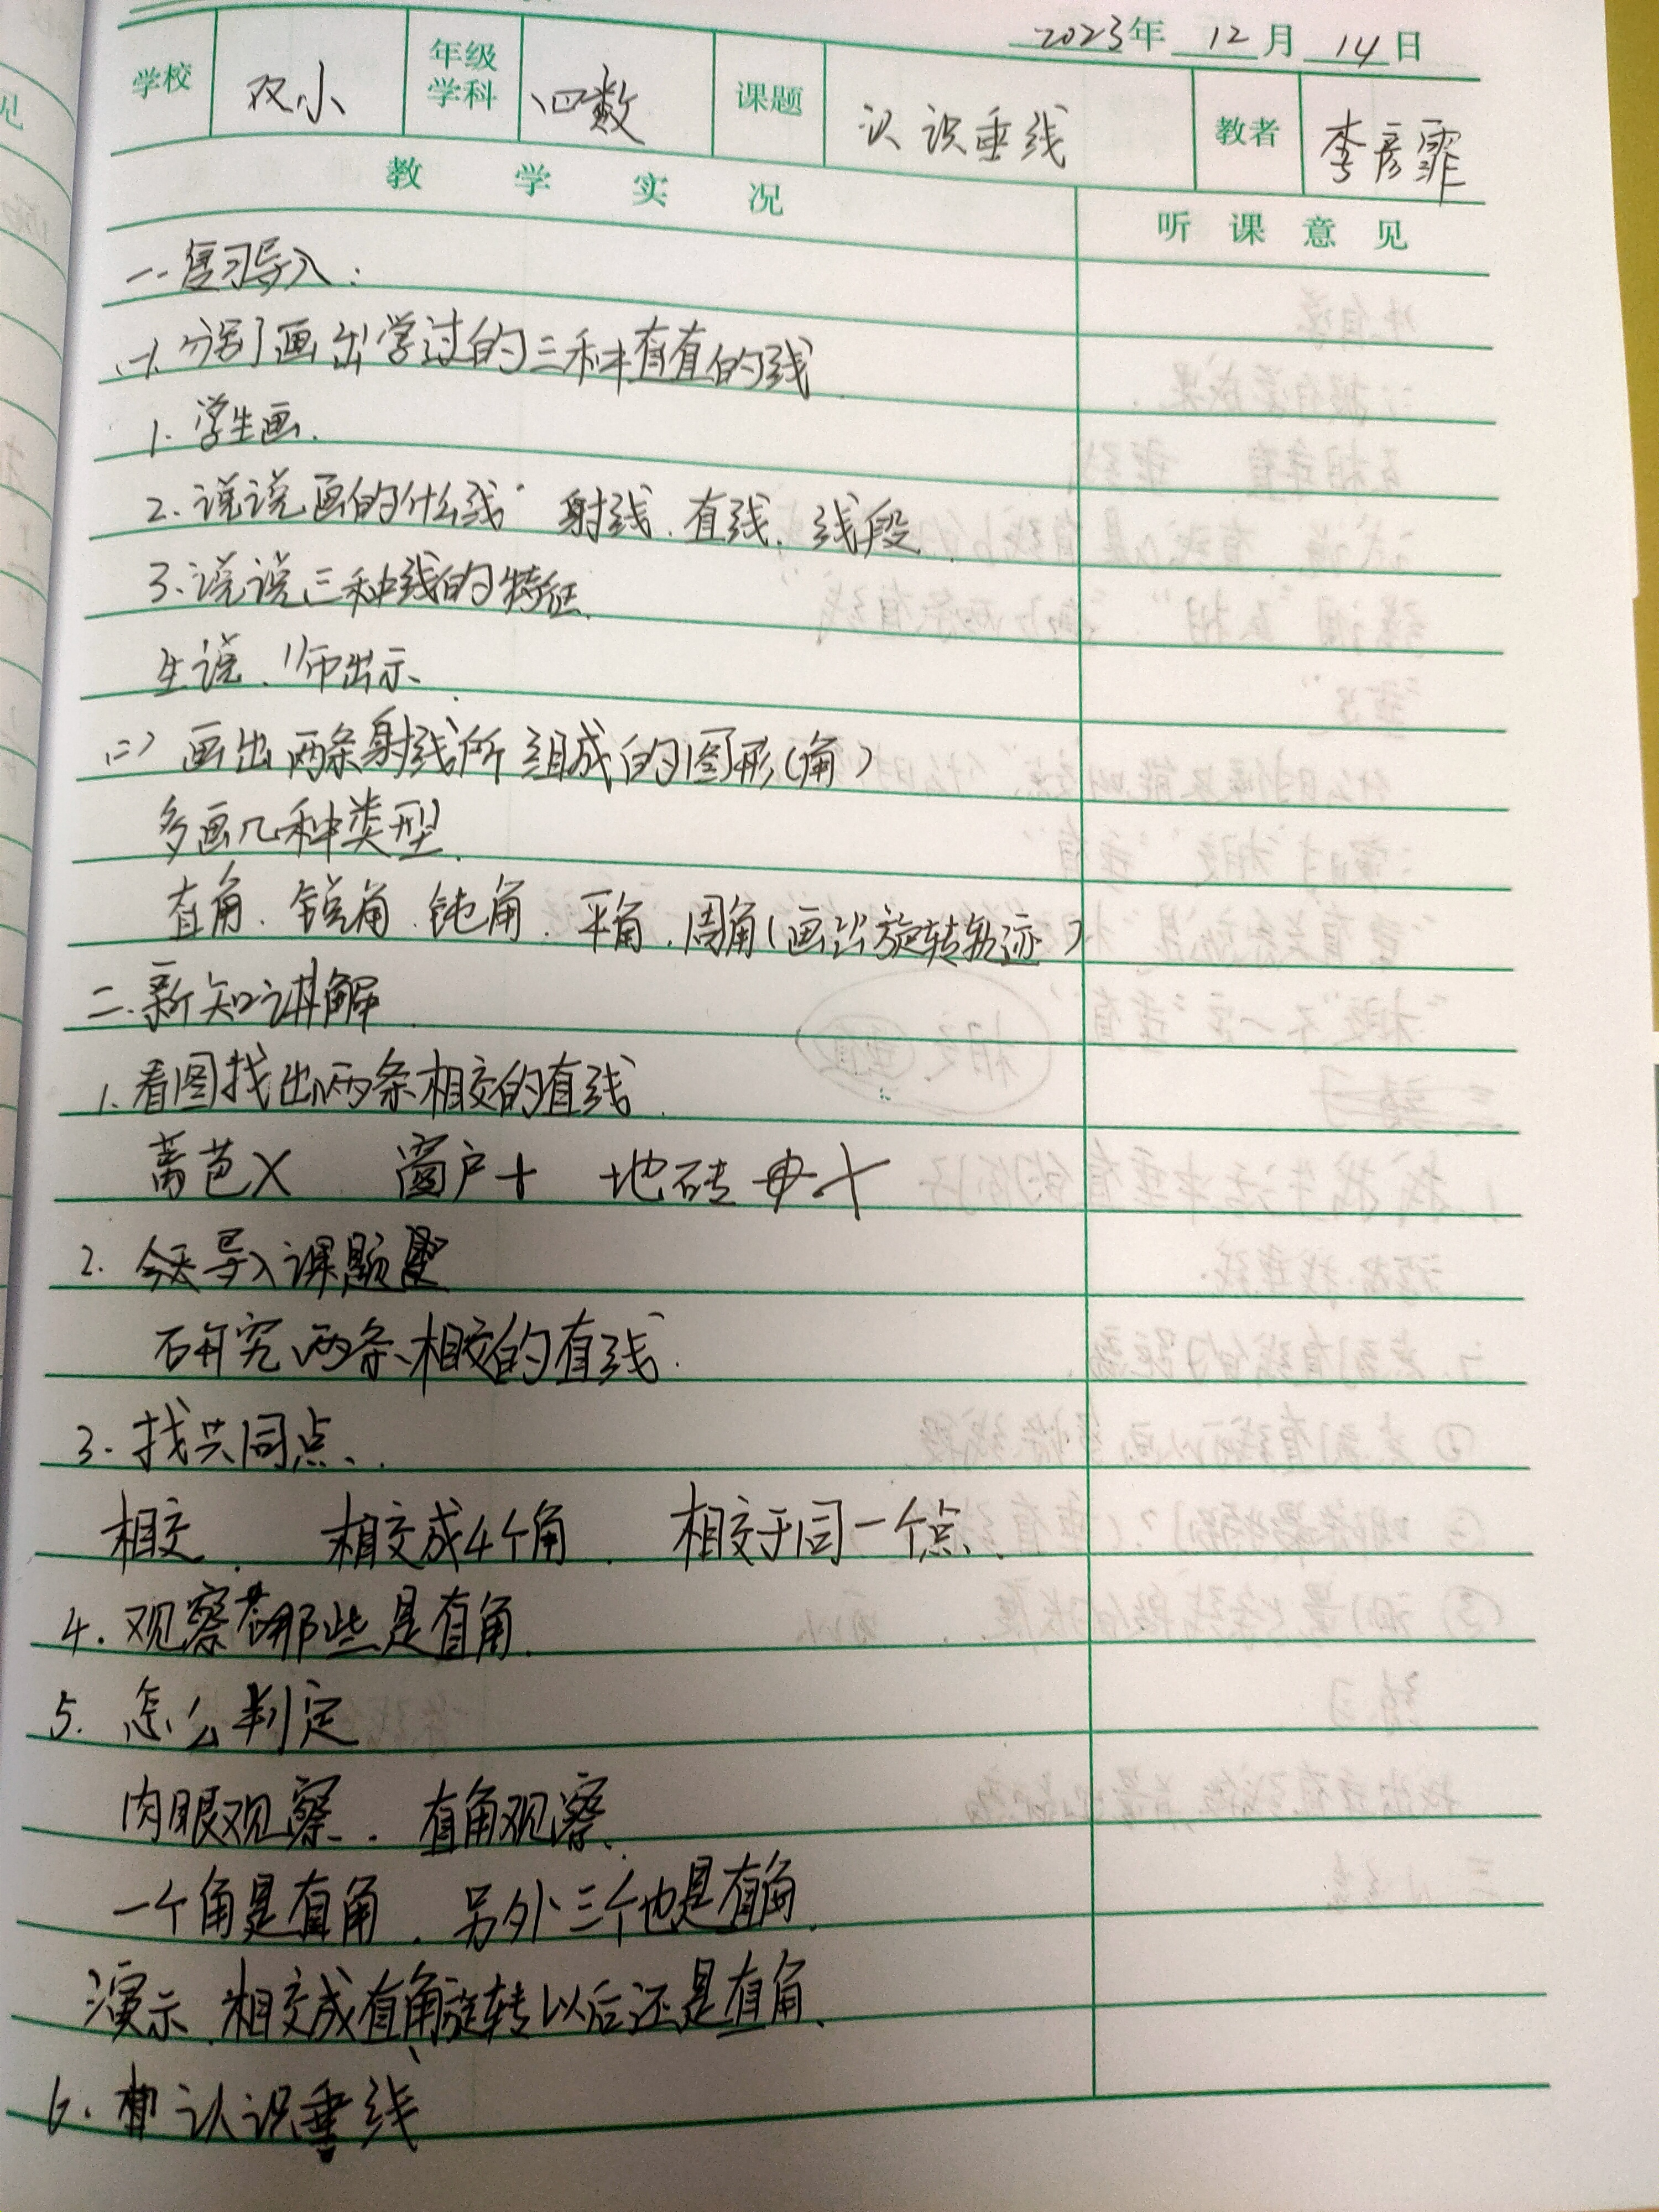 2023年 12月 14日
学校 双小 年级学科 四数 课题 认识垂线 教者 李彦霏
教学实况 听课意见
一.复习导入:
(一).分别画出学过的三种直直的线
1.学生画.
2.说说画的什么线. 射线.直线.线段.
3.说说三种线的特征.
生说.师出示.
(二)画出两条射线所组成的图形(角)
多画几种类型.
直角.锐角.钝角.平角.周角(画出旋转轨迹)
二.新知讲解.
1.看图找出两条相交的直线.
篱芭X 窗户十 地砖
2.今天导入课题
研究两条相交的直线.
3.找共同点.
相交. 相交成4个角. 相交于同一个点.
4.观察哪些是直角.
5.怎么判定
肉眼观察. 直角观察.
一个角是直角.另外三个也是直角.
演示.相交成直角旋转以后还是直角.
6.认识垂线